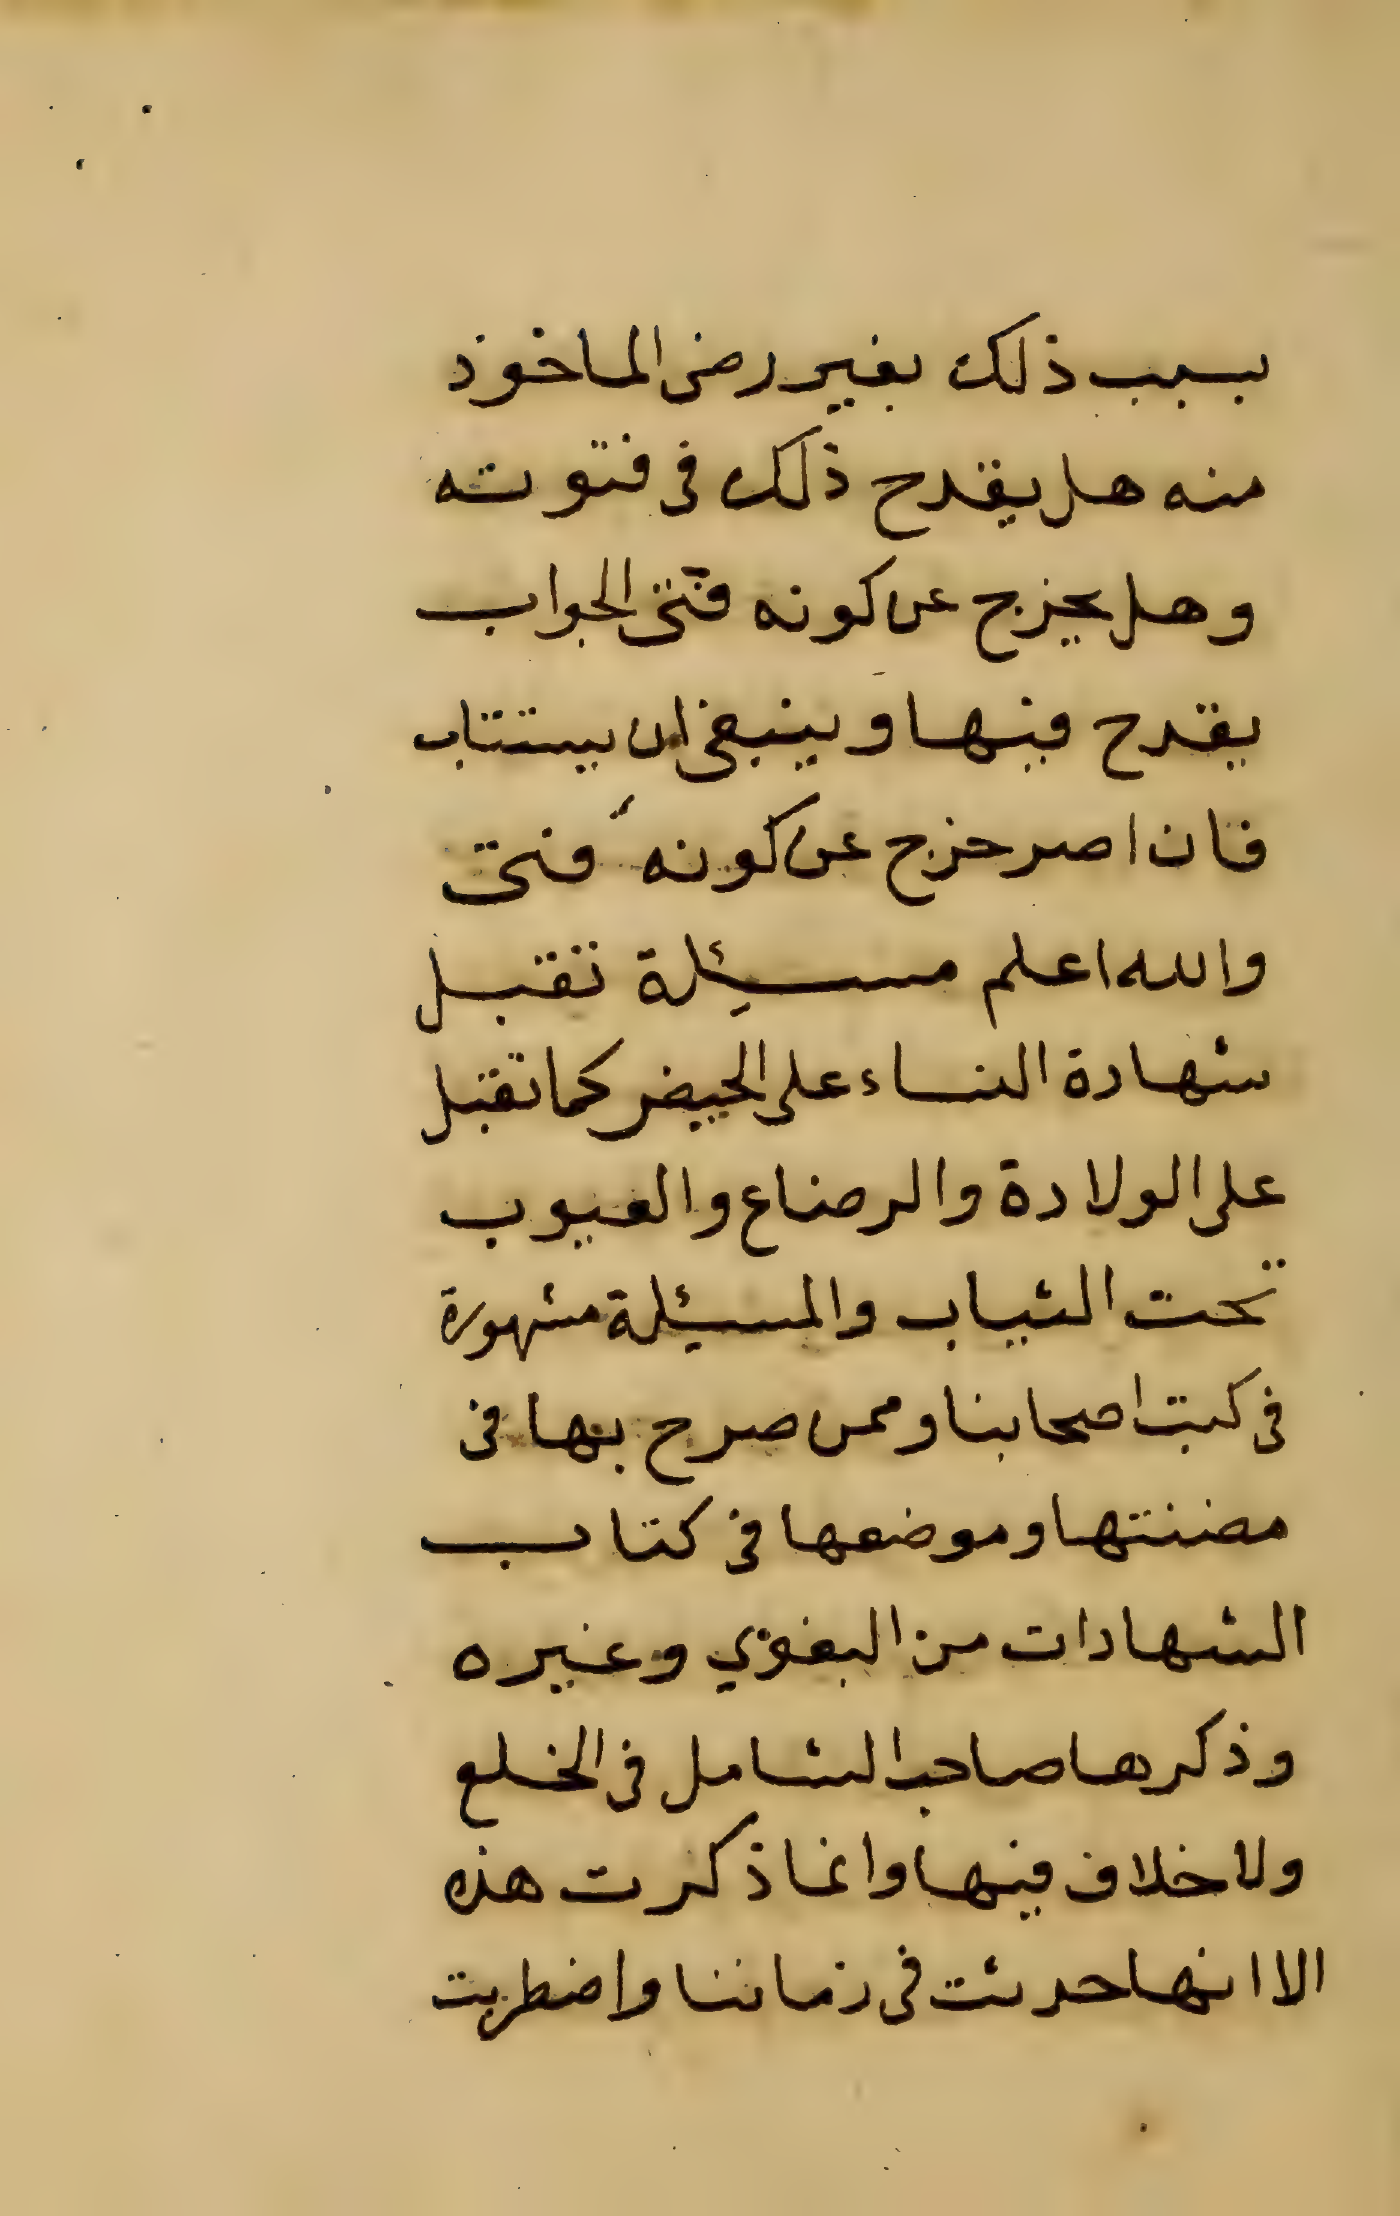 بسبب ذلك بغير رضى الماخوذ
منه هل يقدح ذلك فى فتوته
وهل يخرج عن كونه فتى الجواب
يقدح فيها وينبغى ان يستتاب
فان اصر خرج عن كونه فتى
والله اعلم مسئلة تقبل
شهادة النساء على الحيض كما تقبل
على الولادة والرضاع والعيوب
تحت الثياب والمسئلة مشهورة
فى كتب اصحابنا وممن صرح بها فى
مضنتها وموضعها فى كتاب
الشهادات من البغوي وغيره
وذكرها صاحب الشامل فى الخلع
ولا خلاف فيها وانما ذكرت هذه
الا انها حدثت فى زماننا واضطربت